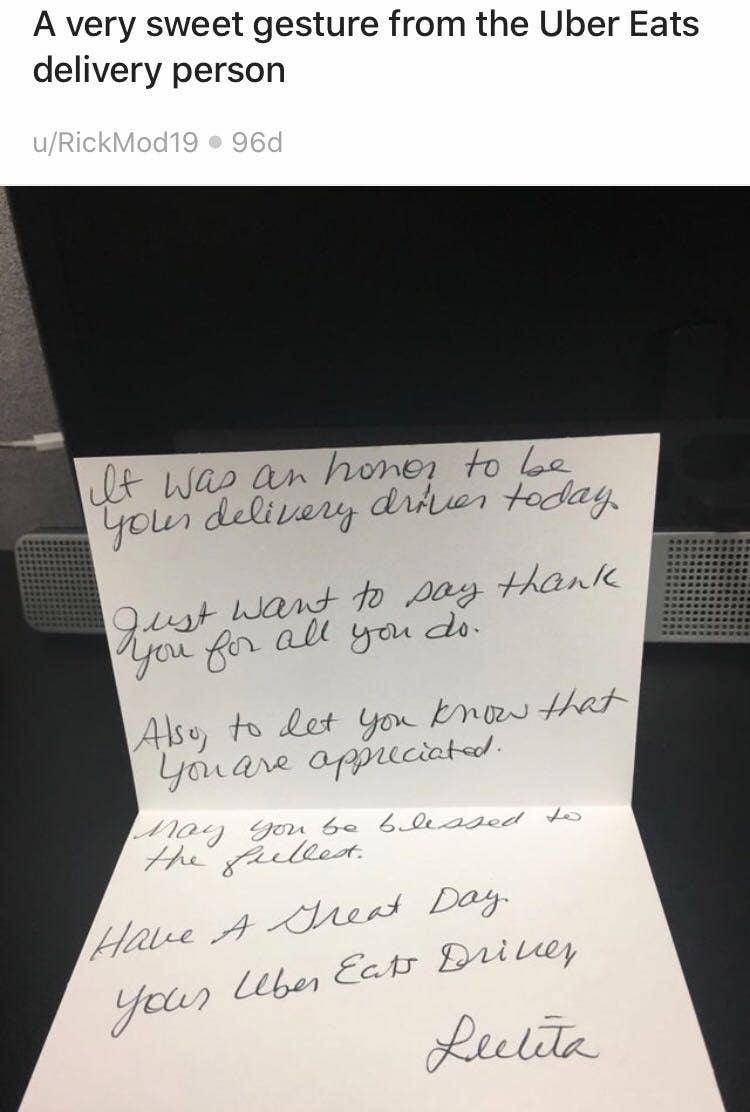 A very sweet gesture from the Uber Eats
delivery person
u/RickMod19 • 96d
It was an honor to be
your delivery driver today.
Just want to say thank
you for all you do.
Also, to let you know that
you are appreciated.
May you be blessed to
the fullest.
Have A Great Day
Your Uber Eats Driver
Luelita